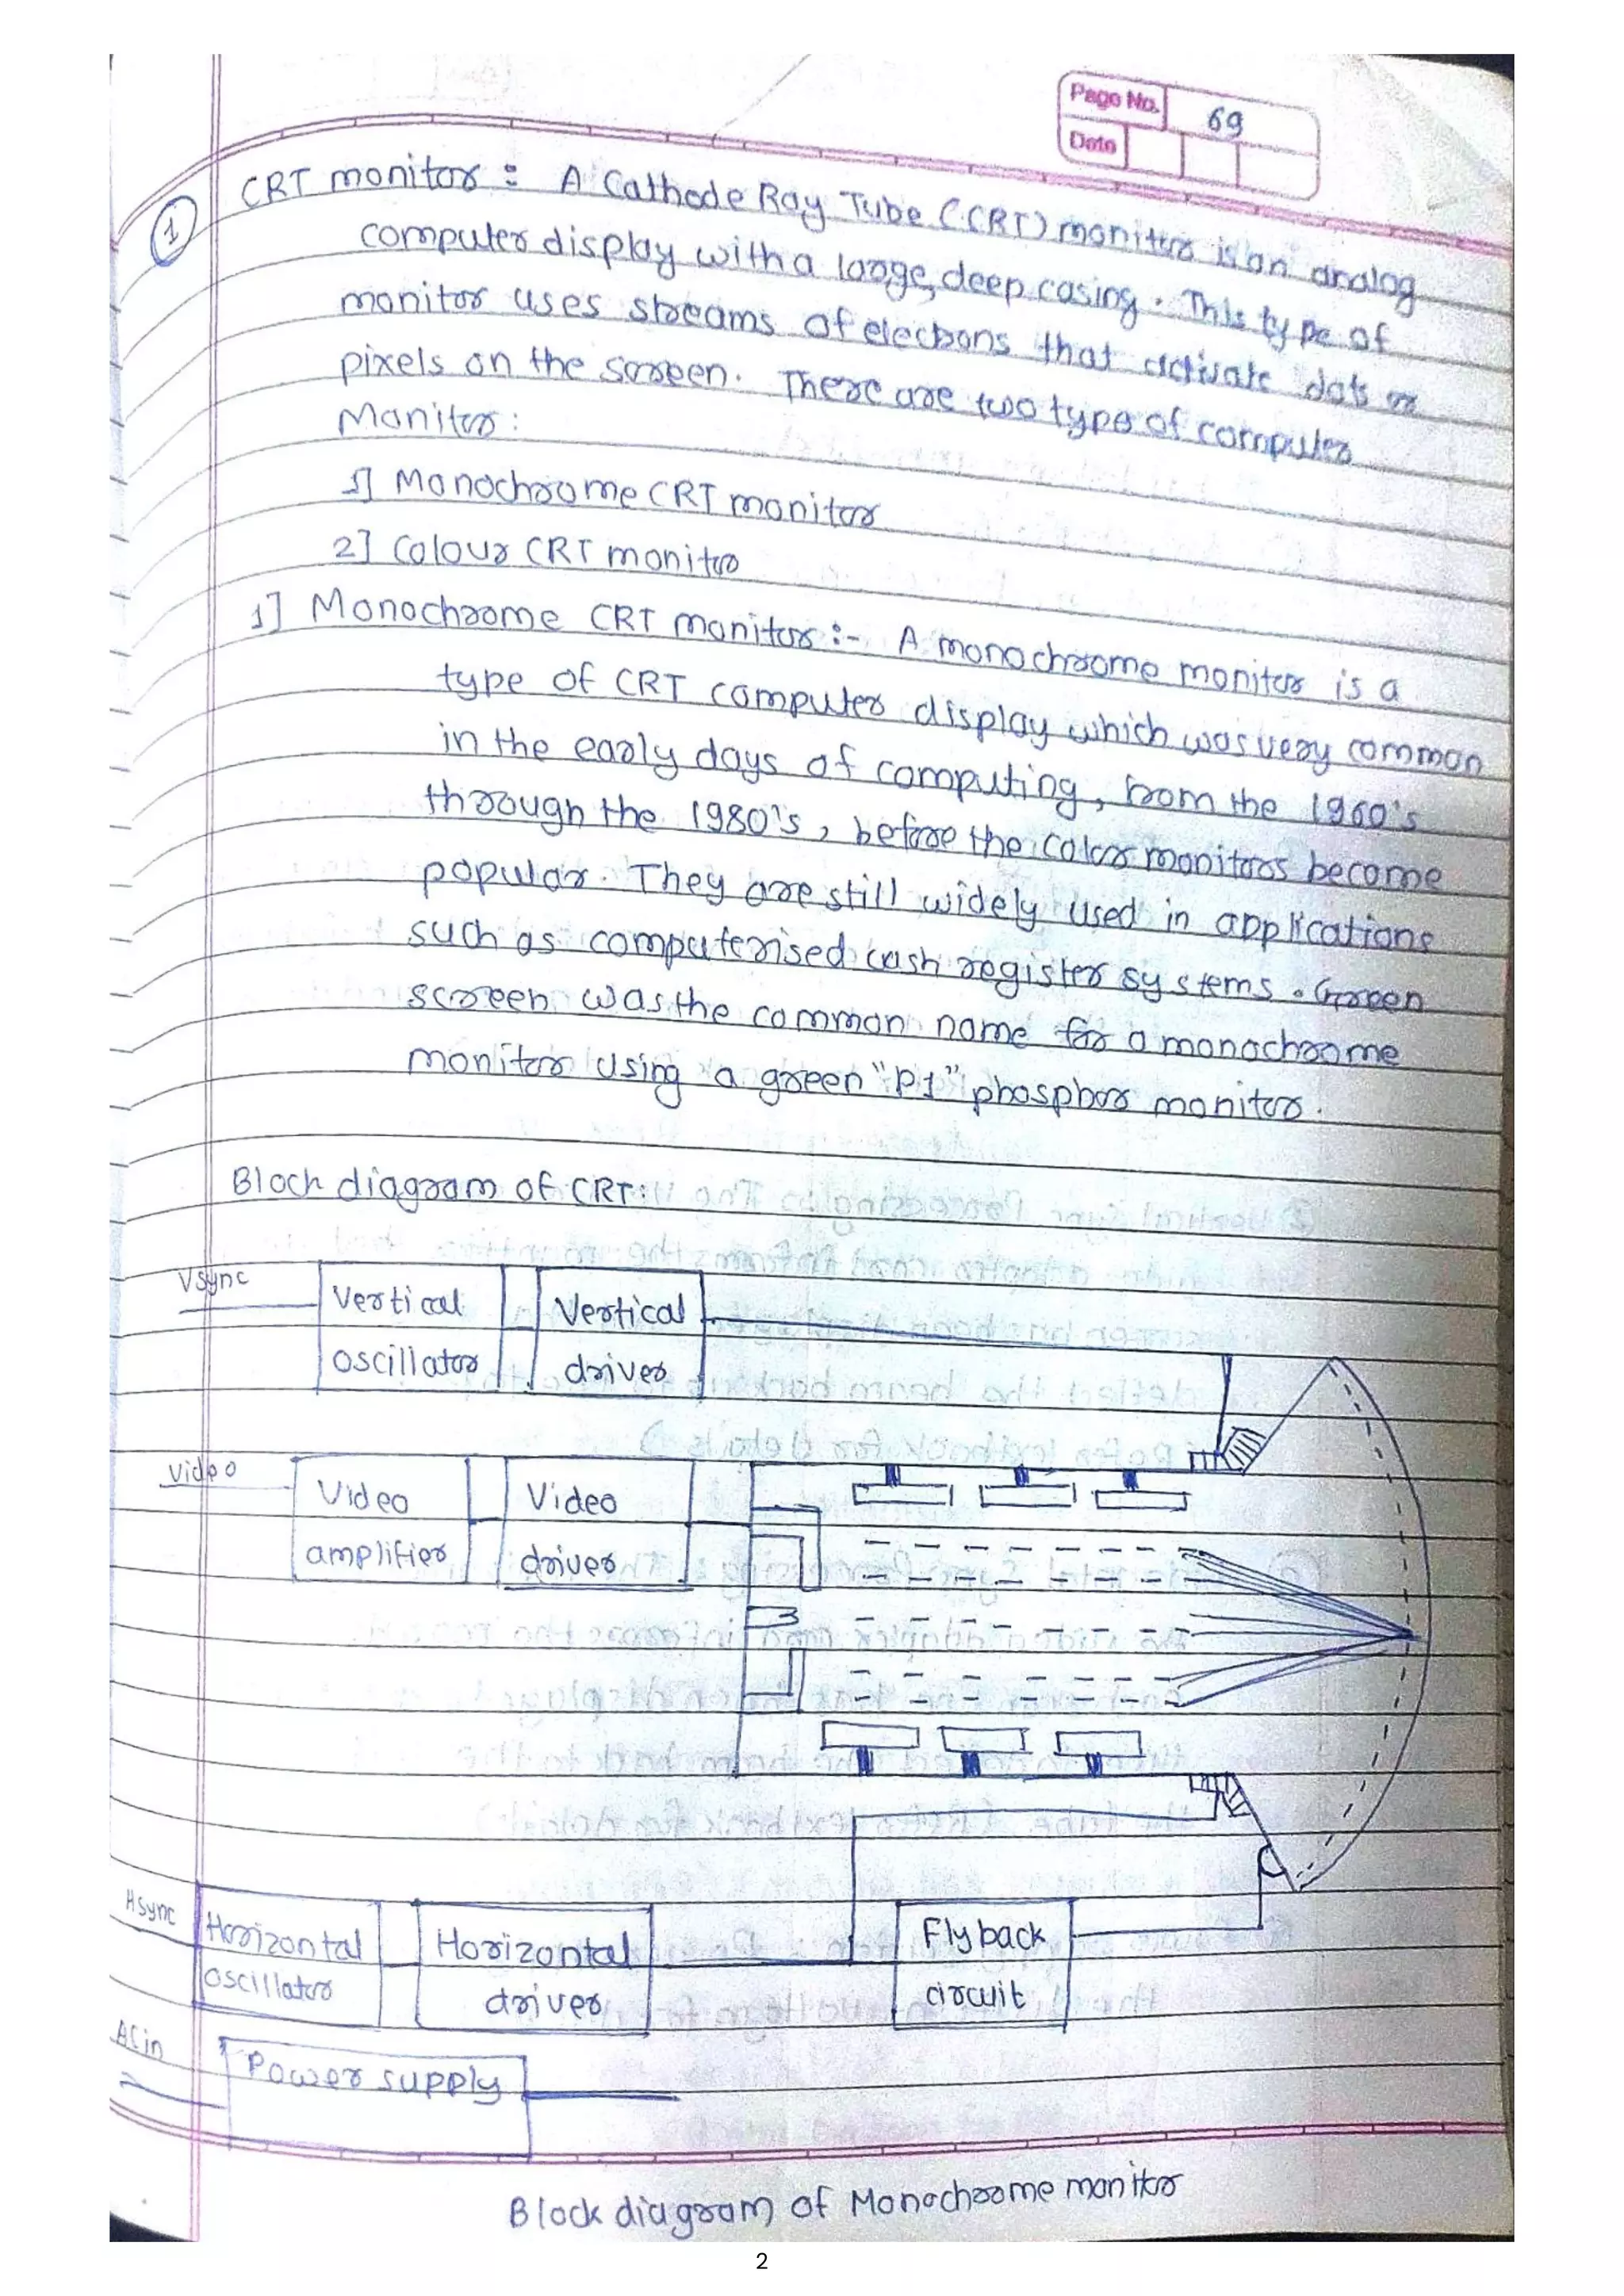 Page No. 69
Date
① CRT monitor : A Cathode Ray Tube (CRT) monitor is an analog
computer display with a large, deep casing. This type of
monitor uses streams of electrons that activate dots or
pixels on the screen. There are two type of computer
Monitor :
1] Monochrome CRT monitor
2] Colour CRT monitor
1] Monochrome CRT monitor :- A monochrome monitor is a
type of CRT computer display which was very common
in the early days of computing, from the 1960's
through the 1980's, before the color monitors become
popular. They are still widely used in applications
such as computerised cash register systems. Green
screen was the common name for a monochrome
monitor using a green "P1" phosphor monitor.
Block diagram of CRT:
Vsync
Vertical
oscillator
Vertical
driver
Video
Video
amplifier
Video
driver
Hsync
Horizontal
oscillator
Horizontal
driver
Flyback
circuit
ACin
Power supply
Block diagram of Monochrome monitor
2